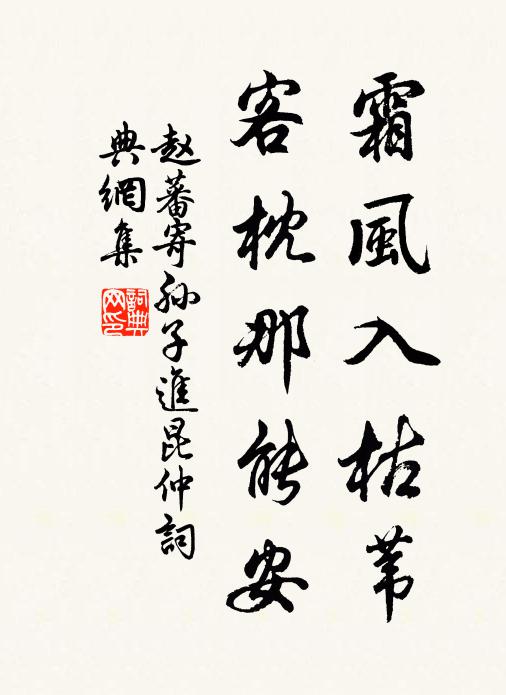 霜風入枯苇
客枕那能安
赵蕃寄孙子進昆仲詞
典網集
詞典
网印